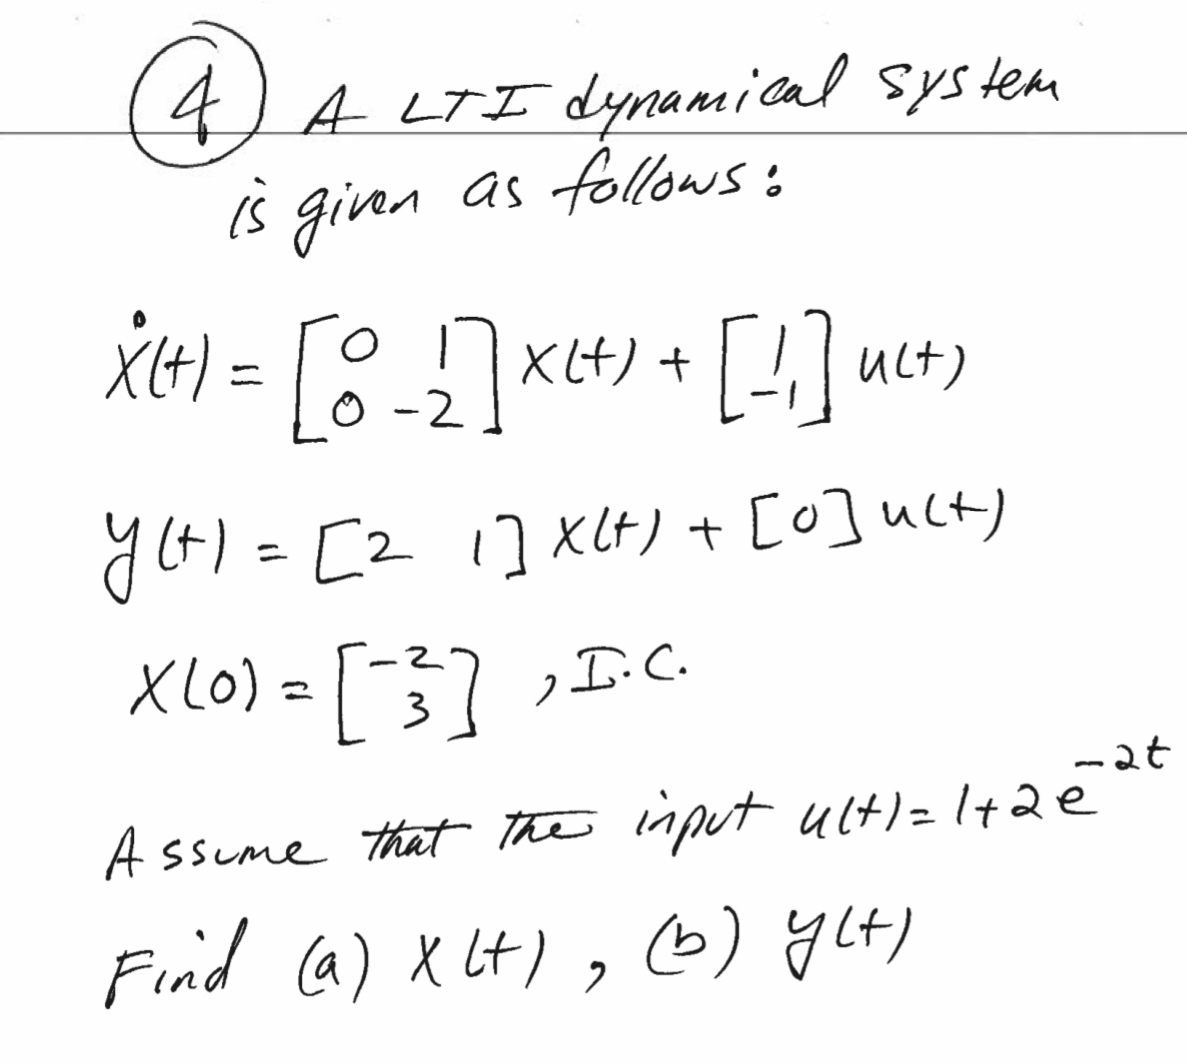 ④ A LTI dynamical system
is given as follows:
ẋ(t) = [0 1; 0 -2] x(t) + [1; -1] u(t)
y(t) = [2 1] x(t) + [0] u(t)
x(0) = [-2; 3] , I.C.
Assume that the input u(t) = 1+2e^-2t
Find (a) x(t) , (b) y(t)